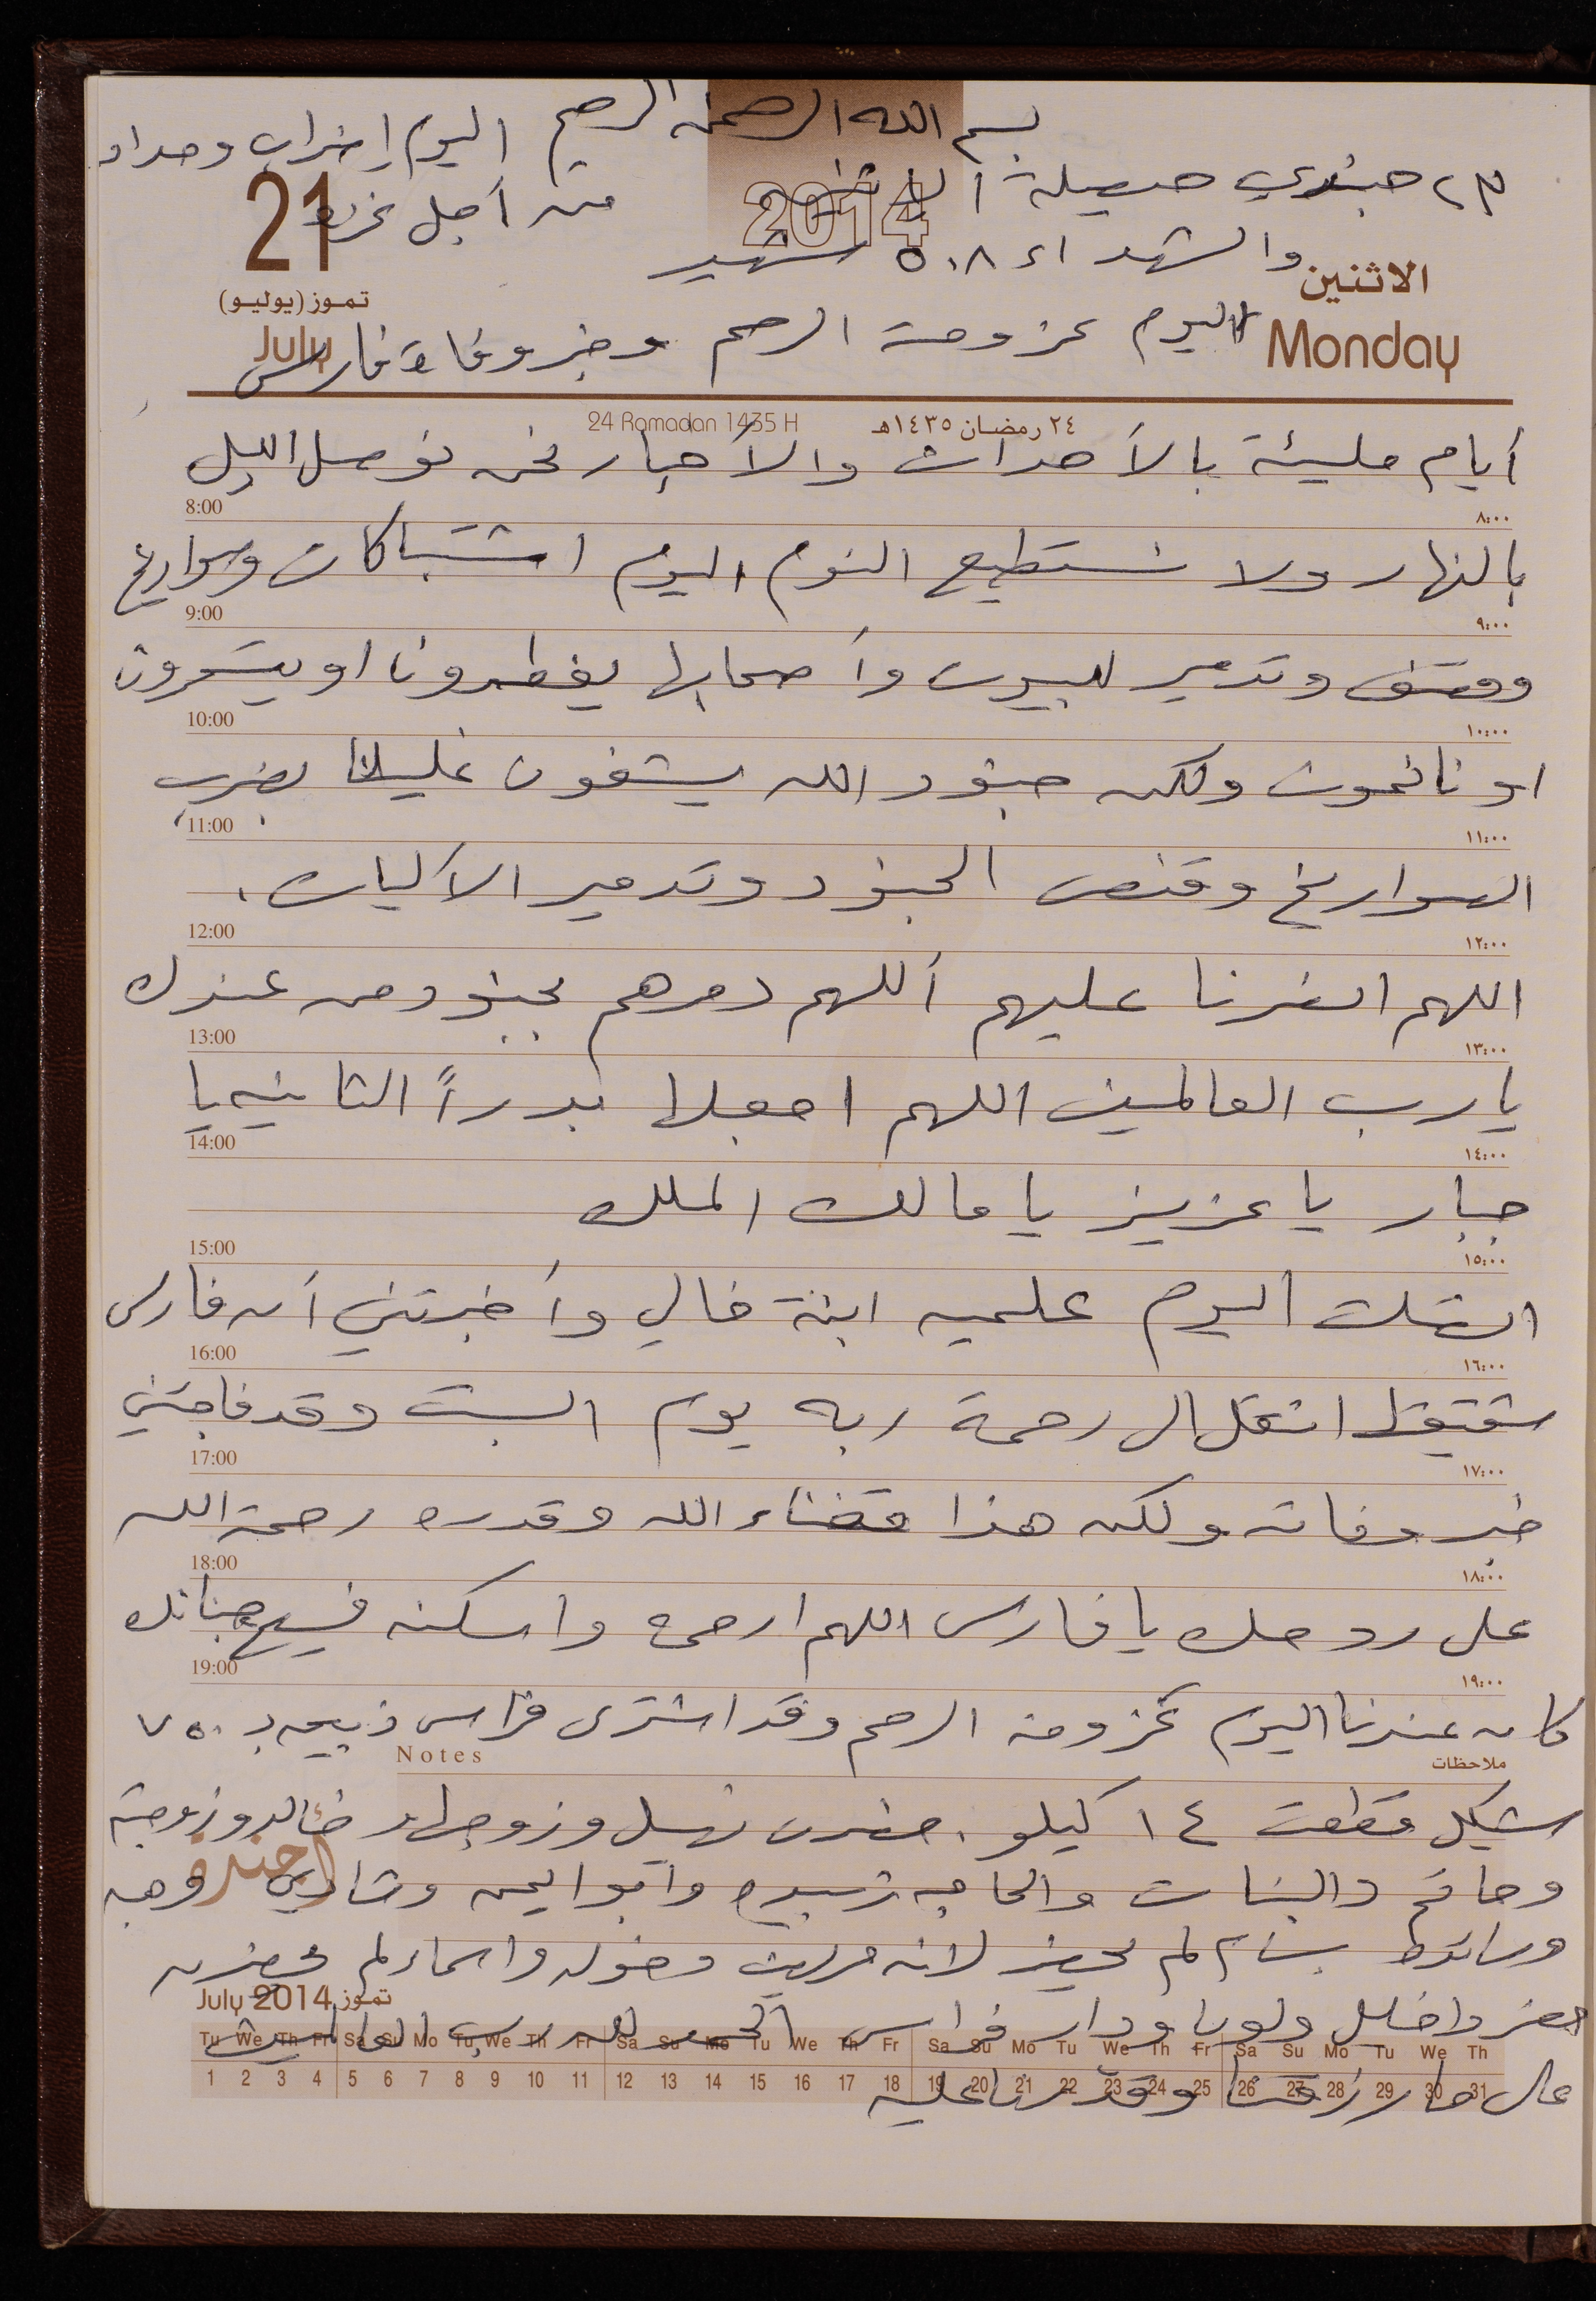 بسم الله الرحمن الرحيم
اليوم إضراب وحداد
من أجل غزة
٢٣ جندي حصيلة الاثنين
والشهداء ٥٠٨ شهيد
اليوم عزومة الرحم وخبر وفاة فارس
2014
21
تمـوز (يوليـو)
July
الاثنين
Monday
24 Ramadan 1435 H
٢٤ رمضـان ١٤٣٥هـ
أيام مليئة بالأحداث والأخبار نحن نوصل الليل
8:00 ٨:٠٠
بالنهار ولا نستطيع النوم اليوم اشتباكات وصواريخ
9:00 ٩:٠٠
وقصف وتدمير للبيوت وأصحابها يفطرون او يتسحرون
10:00 ١٠:٠٠
او نائمون ولكن جنود الله يشفون غليلنا بضرب
11:00 ١١:٠٠
الصواريخ وقنص الجنود وتدمير الآليات.
12:00 ١٢:٠٠
اللهم انصرنا عليهم اللهم دمرهم بجنود من عندك
13:00 ١٣:٠٠
يارب العالمين اللهم اجعلها بدراً الثانيه يا
14:00 ١٤:٠٠
جبار يا عزيز يا مالك الملك
15:00 ١٥:٠٠
اتصلت اليوم علميه ابنة خالي وأخبرتني أن فارس
16:00 ١٦:٠٠
شقيقها انتقل الى رحمة ربه يوم السبت وقد فاجئني
17:00 ١٧:٠٠
خبر وفاته ولكن هذا قضاء الله وقدره رحمة الله
18:00 ١٨:٠٠
على روحك يا فارس اللهم ارحمه واسكنه فسيح جناتك
19:00 ١٩:٠٠
كان عندنا اليوم عزومة الرحم وقد اشترى فراس ذبيحه بـ ٧٥٠
Notes ملاحظات
شيكل قطعت ١٤ كيلو. حضرت نهيل وزوجها وخالد وزوجته
أجندة
وحاتم والبنات والحاجه زبيده وابو ايمن وشادي وزوجته
ورائدة بسام لم يحضر لانه مريض وخوله واسماء لم يحضرن
July 2014 تمـوز
حضر داخليل ولونا ودار فراس الحمد لله رب العالمين
Tu We Th Fr Sa Su Mo Tu We Th Fr Sa Su Mo Tu We Th Fr Sa Su Mo Tu We Th Fr Sa Su Mo Tu We Th
1 2 3 4 5 6 7 8 9 10 11 12 13 14 15 16 17 18 19 20 21 22 23 24 25 26 27 28 29 30 31
على ما رزقنا وقدرنا عليه